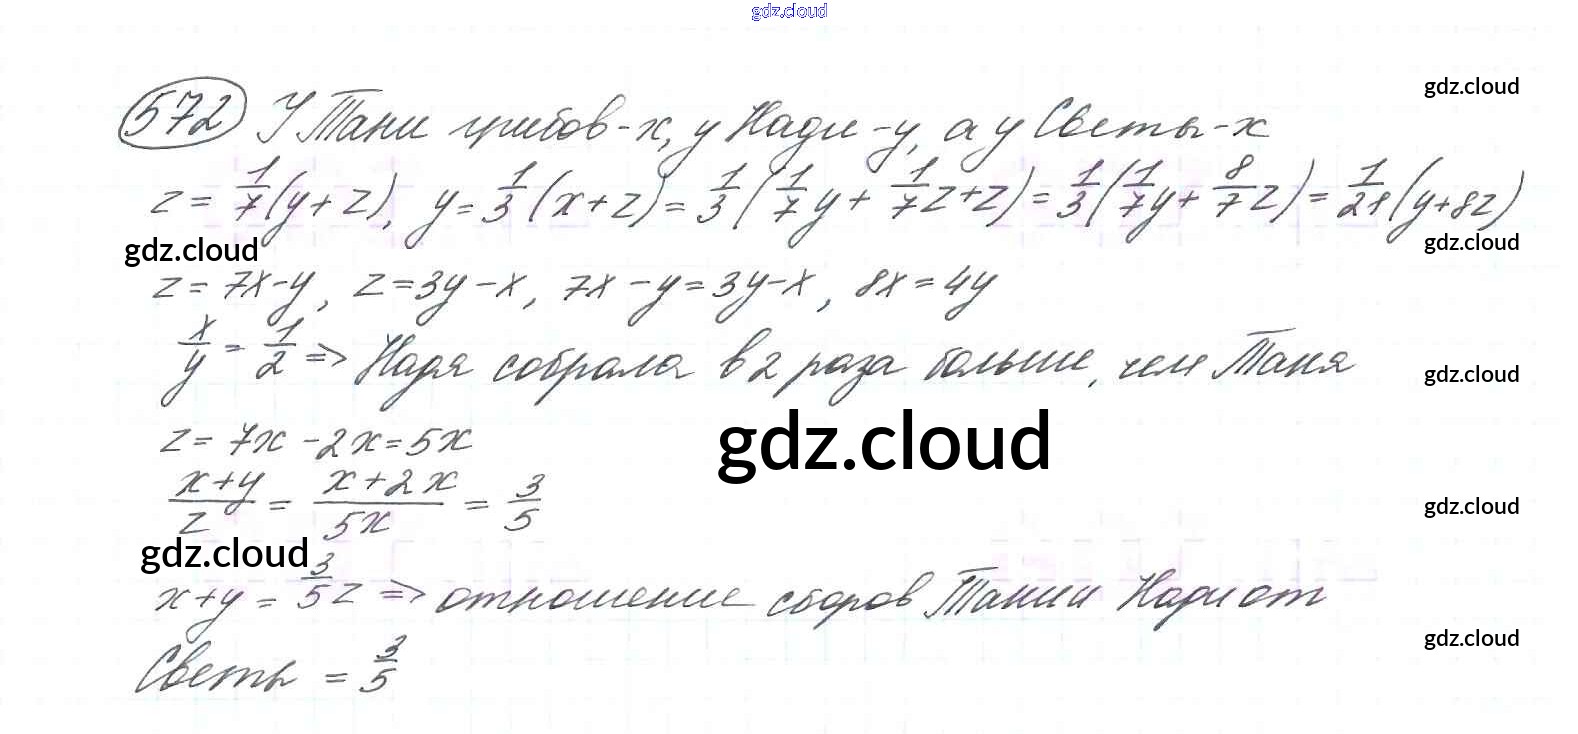 gdz.cloud
gdz.cloud
572 У Тани грибов - x, у Нади - y, а у Светы - x
z = 1/7 (y + z), y = 1/3 (x + z) = 1/3 (1/7 y + 1/7 z + z) = 1/3 (1/7 y + 8/7 z) = 1/21 (y + 8z)
gdz.cloud
gdz.cloud
z = 7x - y, z = 3y - x, 7x - y = 3y - x, 8x = 4y
x/y = 1/2 => Надя собрала в 2 раза больше, чем Таня
gdz.cloud
z = 7x - 2x = 5x
gdz.cloud
(x + y)/z = (x + 2x)/5x = 3/5
gdz.cloud
gdz.cloud
x + y = 3/5 z => отношение сборов Тани и Нади от
gdz.cloud
Светы = 3/5